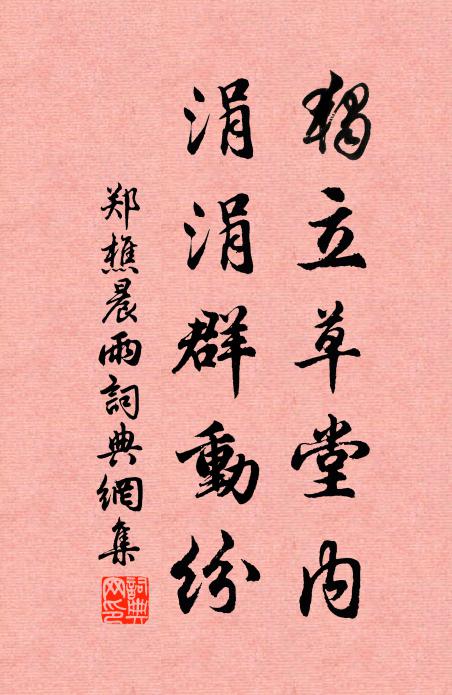 獨立草堂內
涓涓群動紛
郑樵晨雨詞典網集
詞典網印